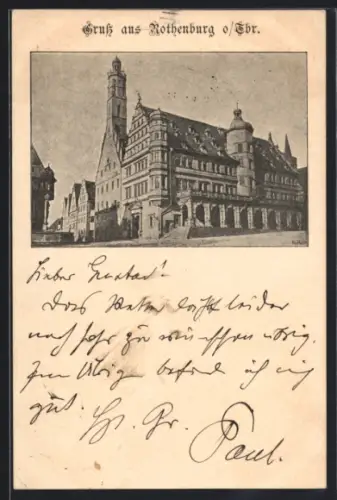 Gruß aus Rothenburg o/Tbr.
Lieber Gustav!
Das Wetter läßt leider
noch sehr zu wünschen übrig.
Im Übrigen befinde ich mich
gut. Hz. Gr.
Paul.